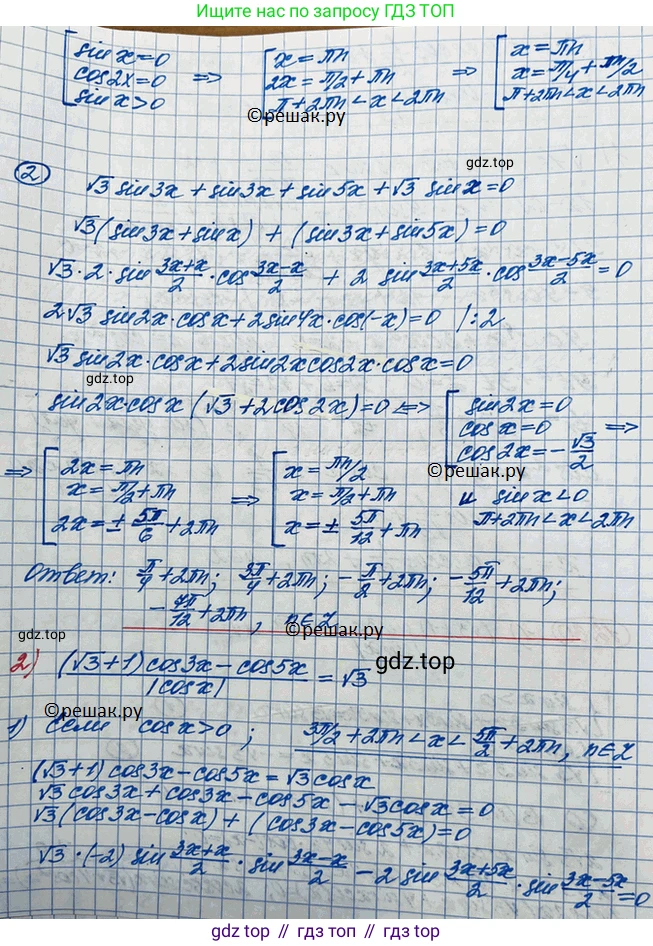 Ищите нас по запросу ГДЗ ТОП
[ sin x = 0 ; cos 2x = 0 ; sin x > 0 => [ x = πn ; 2x = π/2 + πn ; π + 2πn < x < 2πn => [ x = πn ; x = π/4 + πn/2 ; π + 2πn < x < 2πn
©reшак.ру
② √3 sin 3x + sin 3x + sin 5x + √3 sin x = 0
gdz.top
√3 (sin 3x + sin x) + (sin 3x + sin 5x) = 0
√3 · 2 · sin (3x+x)/2 · cos (3x-x)/2 + 2 sin (3x+5x)/2 · cos (3x-5x)/2 = 0
2√3 sin 2x · cos x + 2 sin 4x · cos(-x) = 0 | : 2
√3 sin 2x · cos x + 2 sin 2x cos 2x · cos x = 0
gdz.top
sin 2x · cos x (√3 + 2 cos 2x) = 0 <=> [ sin 2x = 0 ; cos x = 0 ; cos 2x = -√3/2 =>
©reшак.ру
и sin x < 0
π + 2πn < x < 2πn
=> [ 2x = πn ; x = π/2 + πn ; 2x = ± 5π/6 + 2πn => [ x = πn/2 ; x = π/2 + πn ; x = ± 5π/12 + πn
Ответ: π/4 + 2πn; 3π/4 + 2πn; -π/2 + 2πn; -5π/12 + 2πn;
-7π/12 + 2πn, n∈Z
©reшак.ру
gdz.top
2) ((√3+1) cos 3x - cos 5x)/|cos x| = √3
gdz.top
©reшак.ру
1) Если cos x > 0 ; 3π/2 + 2πn < x < 5π/2 + 2πn, n∈Z
(√3+1) cos 3x - cos 5x = √3 cos x
√3 cos 3x + cos 3x - cos 5x - √3 cos x = 0
√3 (cos 3x - cos x) + (cos 3x - cos 5x) = 0
√3 · (-2) sin (3x+x)/2 · sin (3x-x)/2 - 2 sin (3x+5x)/2 · sin (3x-5x)/2 = 0
gdz.top // gdz.top // gdz.top // gdz.top